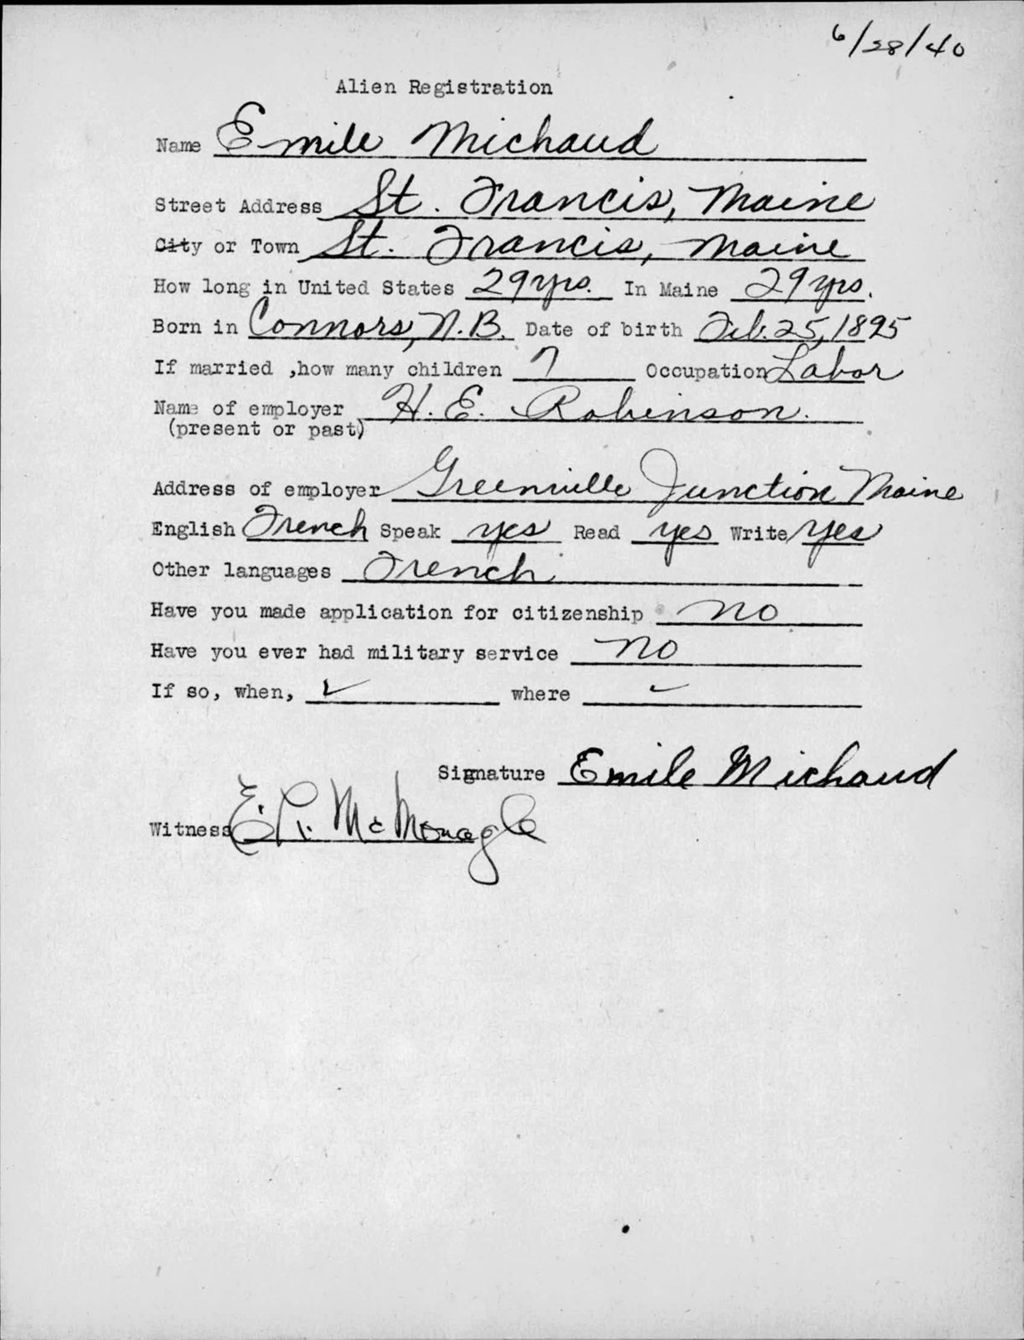 6/28/40
Alien Registration
Name Emile Michaud
Street Address St. Francis, Maine
City or Town St. Francis, Maine
How long in United States 29 yrs. In Maine 29 yrs.
Born in Connors, N.B. Date of birth Feb. 25, 1895
If married ,how many children 7 Occupation Labor
Name of employer H. E. Robinson.
(present or past)
Address of employer Greenville Junction Maine
English French Speak yes Read yes Write yes
Other languages French
Have you made application for citizenship no
Have you ever had military service no
If so, when, ✓ where ✓
Signature Emile Michaud
Witness McMonagle